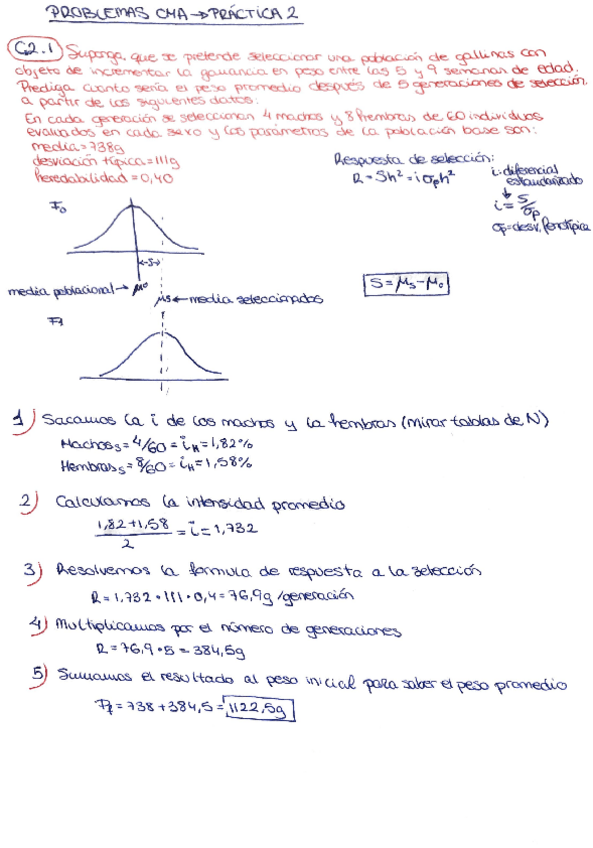 PROBLEMAS CMA → PRÁCTICA 2
C2.1 Suponga, que se pretende seleccionar una población de gallinas con
objeto de incrementar la ganancia en peso entre las 5 y 9 semanas de edad.
Prediga cuanto sería el peso promedio después de 5 generaciones de selección,
a partir de los siguientes datos:
En cada generación se seleccionan 4 machos y 8 hembras de 60 individuos
evaluados en cada sexo y los parámetros de la población base son:
media = 738g
desviación típica = 111g
heredabilidad = 0,40
Respuesta de selección:
R = Sh² = i σp h²
i: diferencial
estandarizado
i = S/σp
σp = desv. fenotípica
F₀
←S→
media poblacional → μ₀
μs ← media seleccionados
S = μs - μ₀
F₁
1) Sacamos la i de los machos y la hembras (mirar tablas de N)
Machos s = 4/60 = iM = 1,82%
Hembras s = 8/60 = iH = 1,58%
2) Calculamos la intensidad promedio
1,82 + 1,58 / 2 = i = 1,732
3) Resolvemos la formula de respuesta a la selección
R = 1,732 · 111 · 0,4 = 76,9g/generación
4) Multiplicamos por el número de generaciones
R = 76,9 · 5 = 384,5g
5) Sumamos el resultado al peso inicial para saber el peso promedio
= 738 + 384,5 = 1122,5g